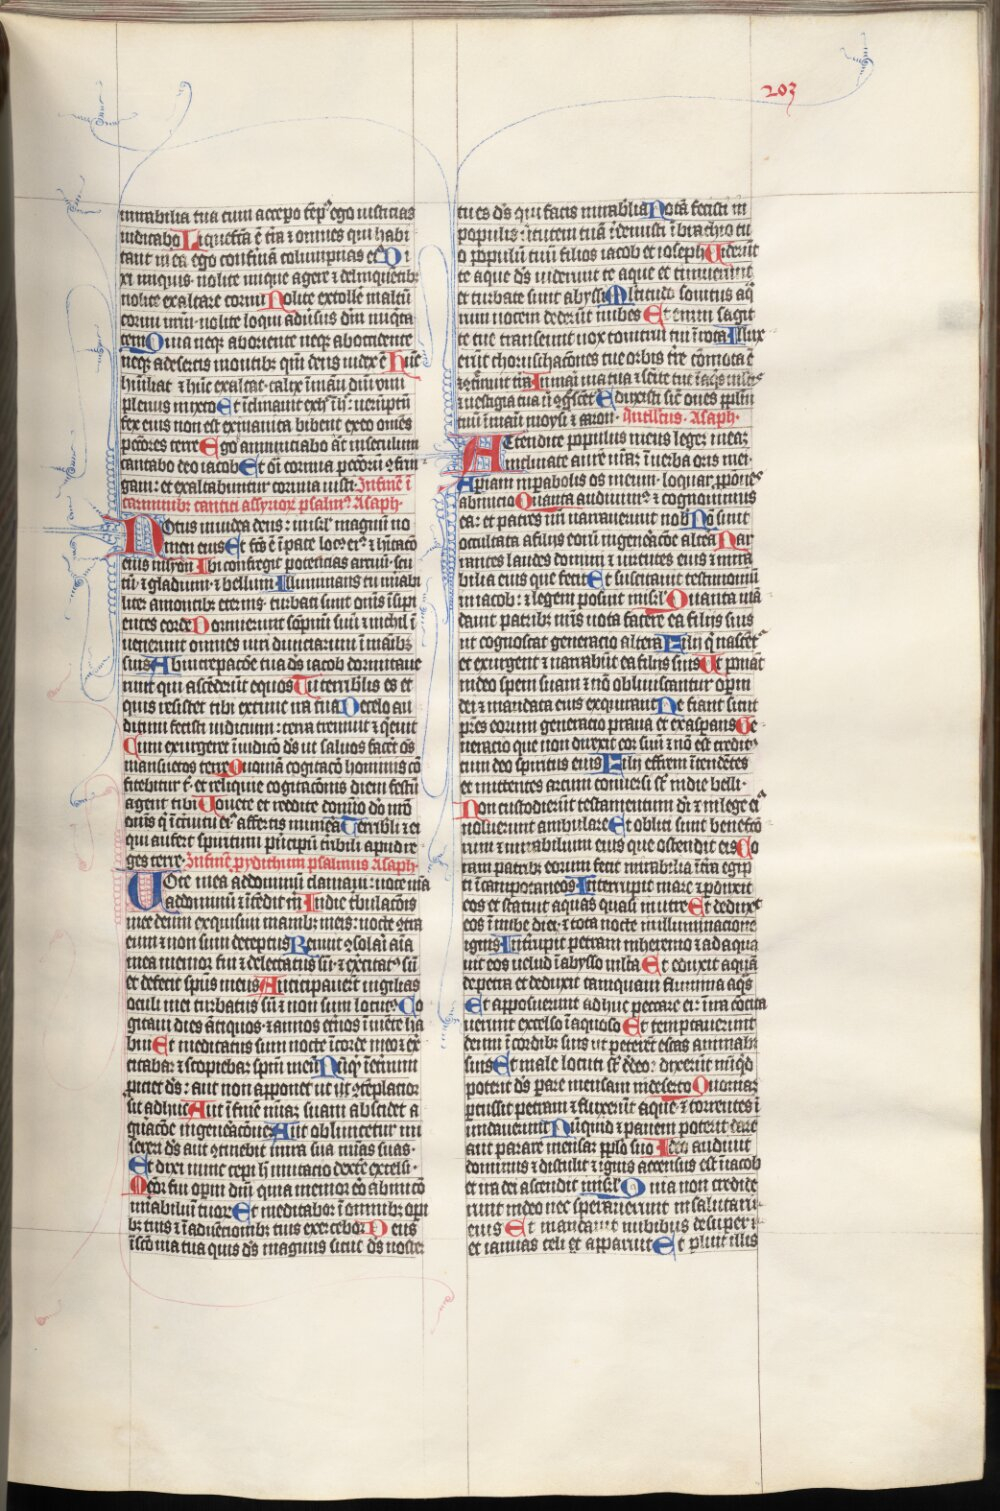 203
mirabilia tua cum accepo tēp᷒ ego iusticias
iudicabo Liquefcā ē tra ⁊ omnes qui habi
tant in ea ego confirmā columpnas ei᷒ Di
xi iniquis· nolite inique agere ⁊ delinquētibꝫ
nolite exaltare cornu Nolite extolle ī altū
cornu urm· nolite loqui aduᷤsus dm iniq̄ta
tem Quia neqꝫ ab oriente neqꝫ ab occidente
neqꝫ a desertis montibꝫ qm̄ deus iudex ē Hūc
hūiliat ⁊ hūc exaltat· calix ī manu dni vini
plenus mixto Et īclinauit ex hͦ ī hͦ: uerūptn̄
fex eius non est exinanita bibent ex eo om̄es
pctōres terre Ego annunciabo āt in seculum
cantabo deo iacob Et oīa cornua pctōrū ↄfrin
gam: et exaltabuntur cornua iusti· In finē ī
carminibꝫ cantici assyrioꝝ psalmꝰ Asaph·
Notus in iudea deus: in isrl̄ magnū no
men eius Et fcūs ē ī pace locꝰ eiꝰ ⁊ hītacō
eius in syon Ibi confregit potencias arcuū· scu
tū· ⁊ gladium· ⁊ bellum Illuminans tu mirabi
liter a montibꝫ eternis· turbati sunt om̄s īsipi
entes corde Dormierunt sōpnū suū ⁊ nichil ī
uenerunt omnes uiri diuiciarum ī manibꝫ
suis Ab increpacōne tua ds iacob dormitaue
runt qui ascēderūt equos Tu terribilis es et
quis resistet tibi ex tunc ira tua De celo au
ditum fecisti iudicium: terra tremuit ⁊ q̄euit
Cum exurgeret ī iudicō ds ut saluos facēt oēs
mansuetos terre Quoniā cogitacō hominis cō
fitebitur t̄· et reliquie cogitacōnis diem festū
agent tibi Uouete et reddite domīo dō urō
om̄s q̄ ī circuitu eiꝰ affertis munera Terribli ⁊ ei
qui aufert spiritum pͥncipū tribili apud re
ges terre· In finē p ydithum psalmus Asaph·
Uoce mea ad dominū clamaui: uoce mea
ad dominū ⁊ ītēdit m̄ In die tbulacōnis
mee deum exquisiui manibꝫ meis: nocte ↄtra
eum ⁊ non sum deceptus Renuit ↄsolari aīa
mea memor fui dei ⁊ delectatus sū· ⁊ exercitatꝰ sū
et defecit spūs meus Anticipauerūt uigilias
oculi mei turbatus sū ⁊ non sum locutꝰ Co
gitaui dies ātiquos· ⁊ annos etnos ī mēte ha
bui Et meditatus sum nocte cū corde meo ⁊ ex
ercitabar ⁊ scopiebaꝫ spm meū Nūqͥd ī etnum
piciet ds: aut non apponet ut sit ↄplacitior
sit adhuc Aut ī finē miam suam abscidet a
gnacōne in generacōneꝫ Aut obliuiscetur mi
sereri ds aut ↄtinebit in ira sua mīas suas·
Et dixi nunc cepi hͨ mutacio dextre excelsi·
Memor fui opum dni quia memor ero ab inicō
mirabiliū tuoꝝ Et meditabor ī omnibꝫ opi
bꝫ tuis ⁊ ī adiuēcionibꝫ tuis exercebor Deus
ī sco uia tua quis ds magnus sicut ds noster
tu es ds qui facis mirabilia Notā fecisti in
populis uirtutem tuā redemisti ī brachio tu
o populū tuū filios iacob et ioseph Uiderūt
te aque ds uiderunt te aque et timuerunt
et turbate sunt abyssi Multitudo sonitus aq̄
rum uocem dederūt nubes Et enim sagit
te tue transeunt uox tonitrui tui ī rota Illux
erūt choruschacōnes tue orbis tre cōmota ē
⁊ ↄtremuit tra In mari uia tua ⁊ semite tue ī aqis mltis
⁊ uestigia tua nō ↄgscēt Eduxisti sic̄ oues pplm̄
tuū ī manu moysi ⁊ aaron· Intellcūs· Asaph·
Attendite populus meus legeꝫ meaꝫ
inclinate aurē urāꝫ ī uerba oris mei·
Apiam in pabolis os meum· loquar ppōnes
ab inicio Quanta audiuimꝰ ⁊ cognouimus
ea: et patres nri narrauerunt nob̄ Nō sunt
occultata a filiis eorū in generacōne altera Nar
rantes laudes domini ⁊ uirtutes eius ⁊ mira
bilia eius que fecit Et suscitauit testimoniū
in iacob: ⁊ legem posuit in isrl̄ Quanta mā
dauit patribꝫ nris nota facere ea filiis suis
ut cognoscat generacio altera Filii q̄ nascēt
et exurgent ⁊ narrabūt ea filiis suis Ut ponāt
in deo spem suam ⁊ nō obliuiscantur opum
dei ⁊ mandata eius exquirant Ne fiant sicut
pres eorum generacio praua et exaspans Ge
neracio que non direxit cor suū ⁊ nō est creditꝰ
cum deo spiritus eius Filii effrem ītendētes
et mittentes arcum conuersi st̄ in die belli·
Non custodierūt testamentum di ⁊ in lege ei᷒
noluerunt ambulare Et obliti sunt benefcō
rum ⁊ mirabilium eius que ostendit eis Co
ram patribꝫ eorum fecit mirabilia ī tra egip
ti ī campo taneos Interrupit mare ⁊ pduxit
eos et statuit aquas quasi in utre Et deduxit
eos ī nube diei· ⁊ tota nocte in illuminacione
ignis Intrupit petram in heremo ⁊ adaqua
uit eos uelud ī abysso mlta Et eduxit aquā
de petra et deduxit tamquam flumina aq̄s
Et apposuerunt adhuc peccare ei: ī ira cōcita
uerunt excelso ī aquoso Et temptauerunt
deum ī cordibꝫ suis ut peterēt escas animabꝫ
suis Et male locuti st̄ de deo: dixerūt nūqͥd
poterit ds pare mensam in deserto Quoniaꝫ
percussit petram ⁊ fluxerūt aque ⁊ torrentes ī
undauerunt Nunquid ⁊ panem poterit dare
aut parare mensaꝫ pplo suo Ideo audiuit
dominus ⁊ distulit ⁊ ignis accensus est ī iacob
et ira dei ascendit in isrl̄ Quia non credide
runt in deo nec sperauerunt in salutari
eius Et mandauit nubibus desuper ⁊
et ianuas celi et apparuit Et pluit illis